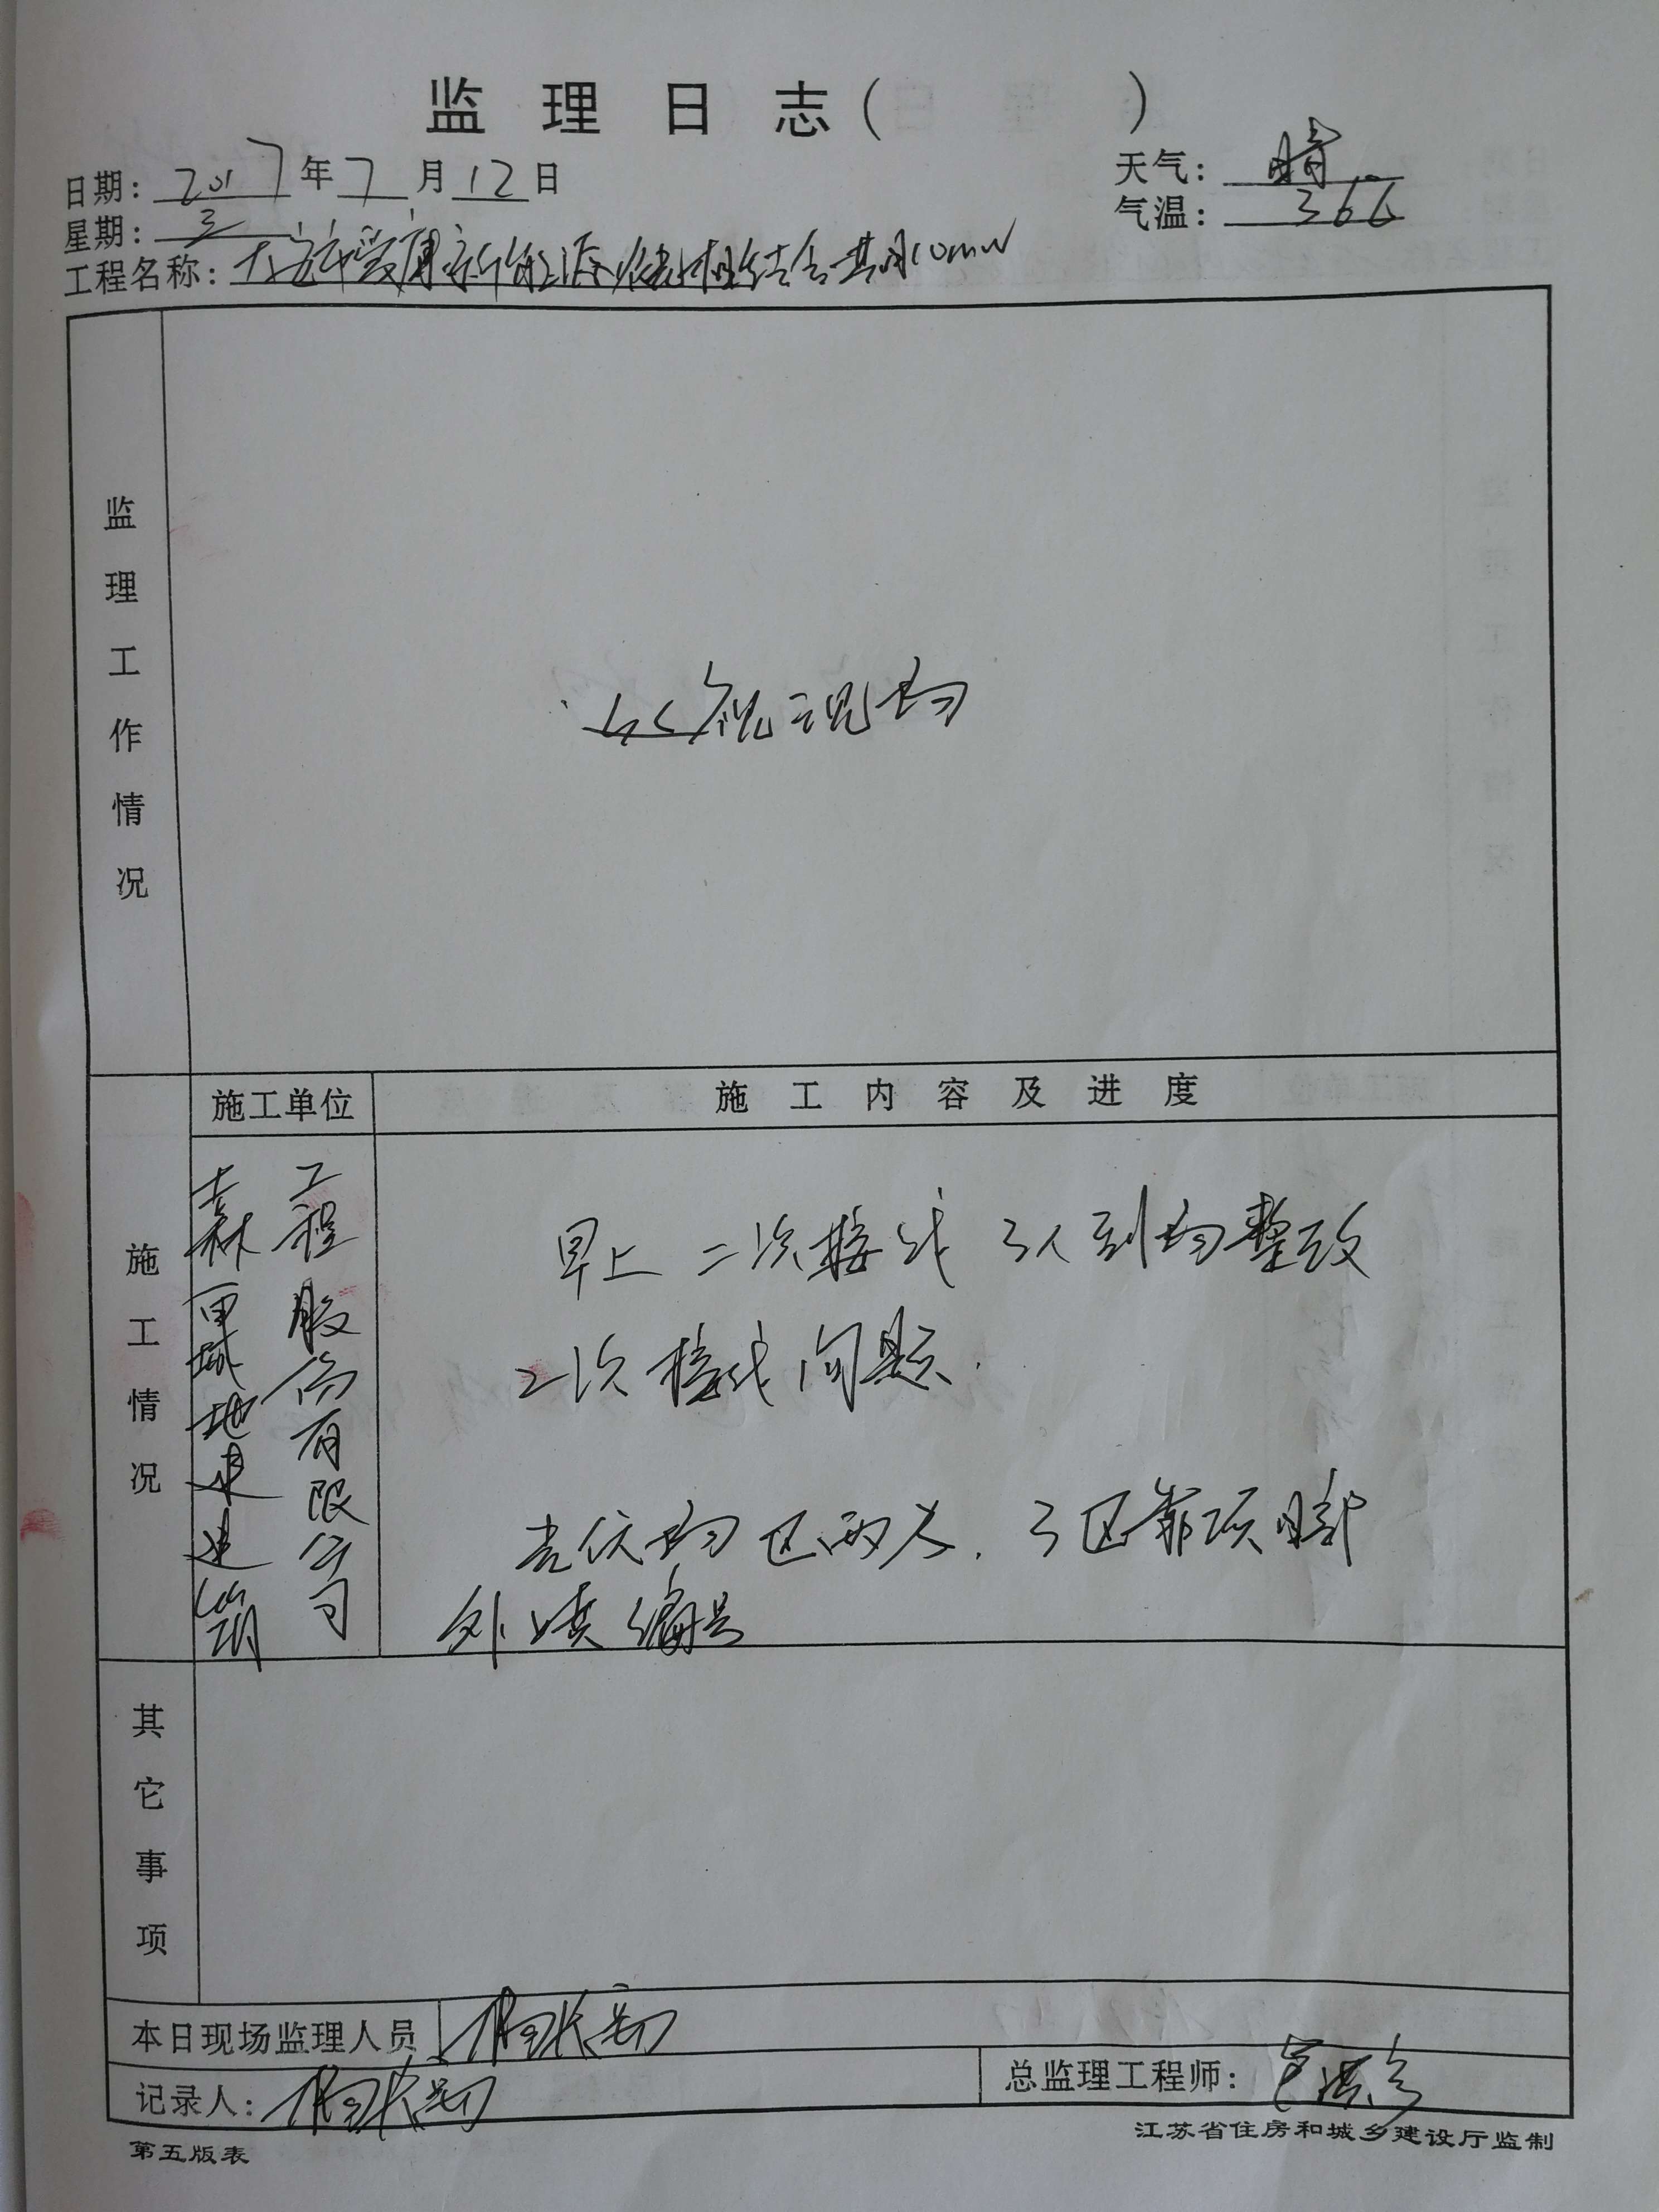 监理日志( )
日期: 2017年7月12日
天气: 晴
星期: 三
气温: 36
工程名称: 大 市 康新能源 结合 10MW
监理工作情况
巡视现场
施工单位
施工内容及进度
施工情况
工程股份有限公司
早上 二次接线 3人到场整改
2次接线问题.
光伏场区两人. 3区靠 脚
外喷编号
其它事项
本日现场监理人员
记录人:
总监理工程师:
第五版表
江苏省住房和城乡建设厅监制